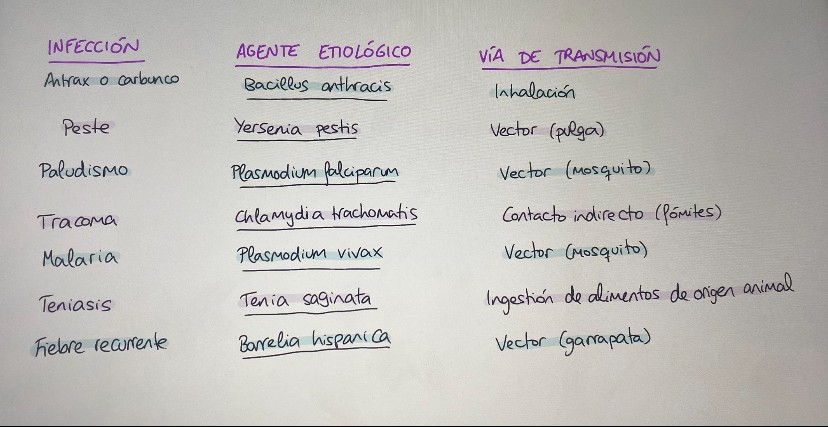 INFECCIÓN AGENTE ETIOLÓGICO VÍA DE TRANSMISIÓN
Antrax o carbunco Bacillus anthracis Inhalación
Peste Yersenia pestis Vector (pulga)
Paludismo Plasmodium falciparum Vector (mosquito)
Tracoma Chlamydia trachomatis Contacto indirecto (fómites)
Malaria Plasmodium vivax Vector (mosquito)
Teniasis Tenia saginata Ingestión de alimentos de origen animal
Fiebre recurrente Borrelia hispanica Vector (garrapata)